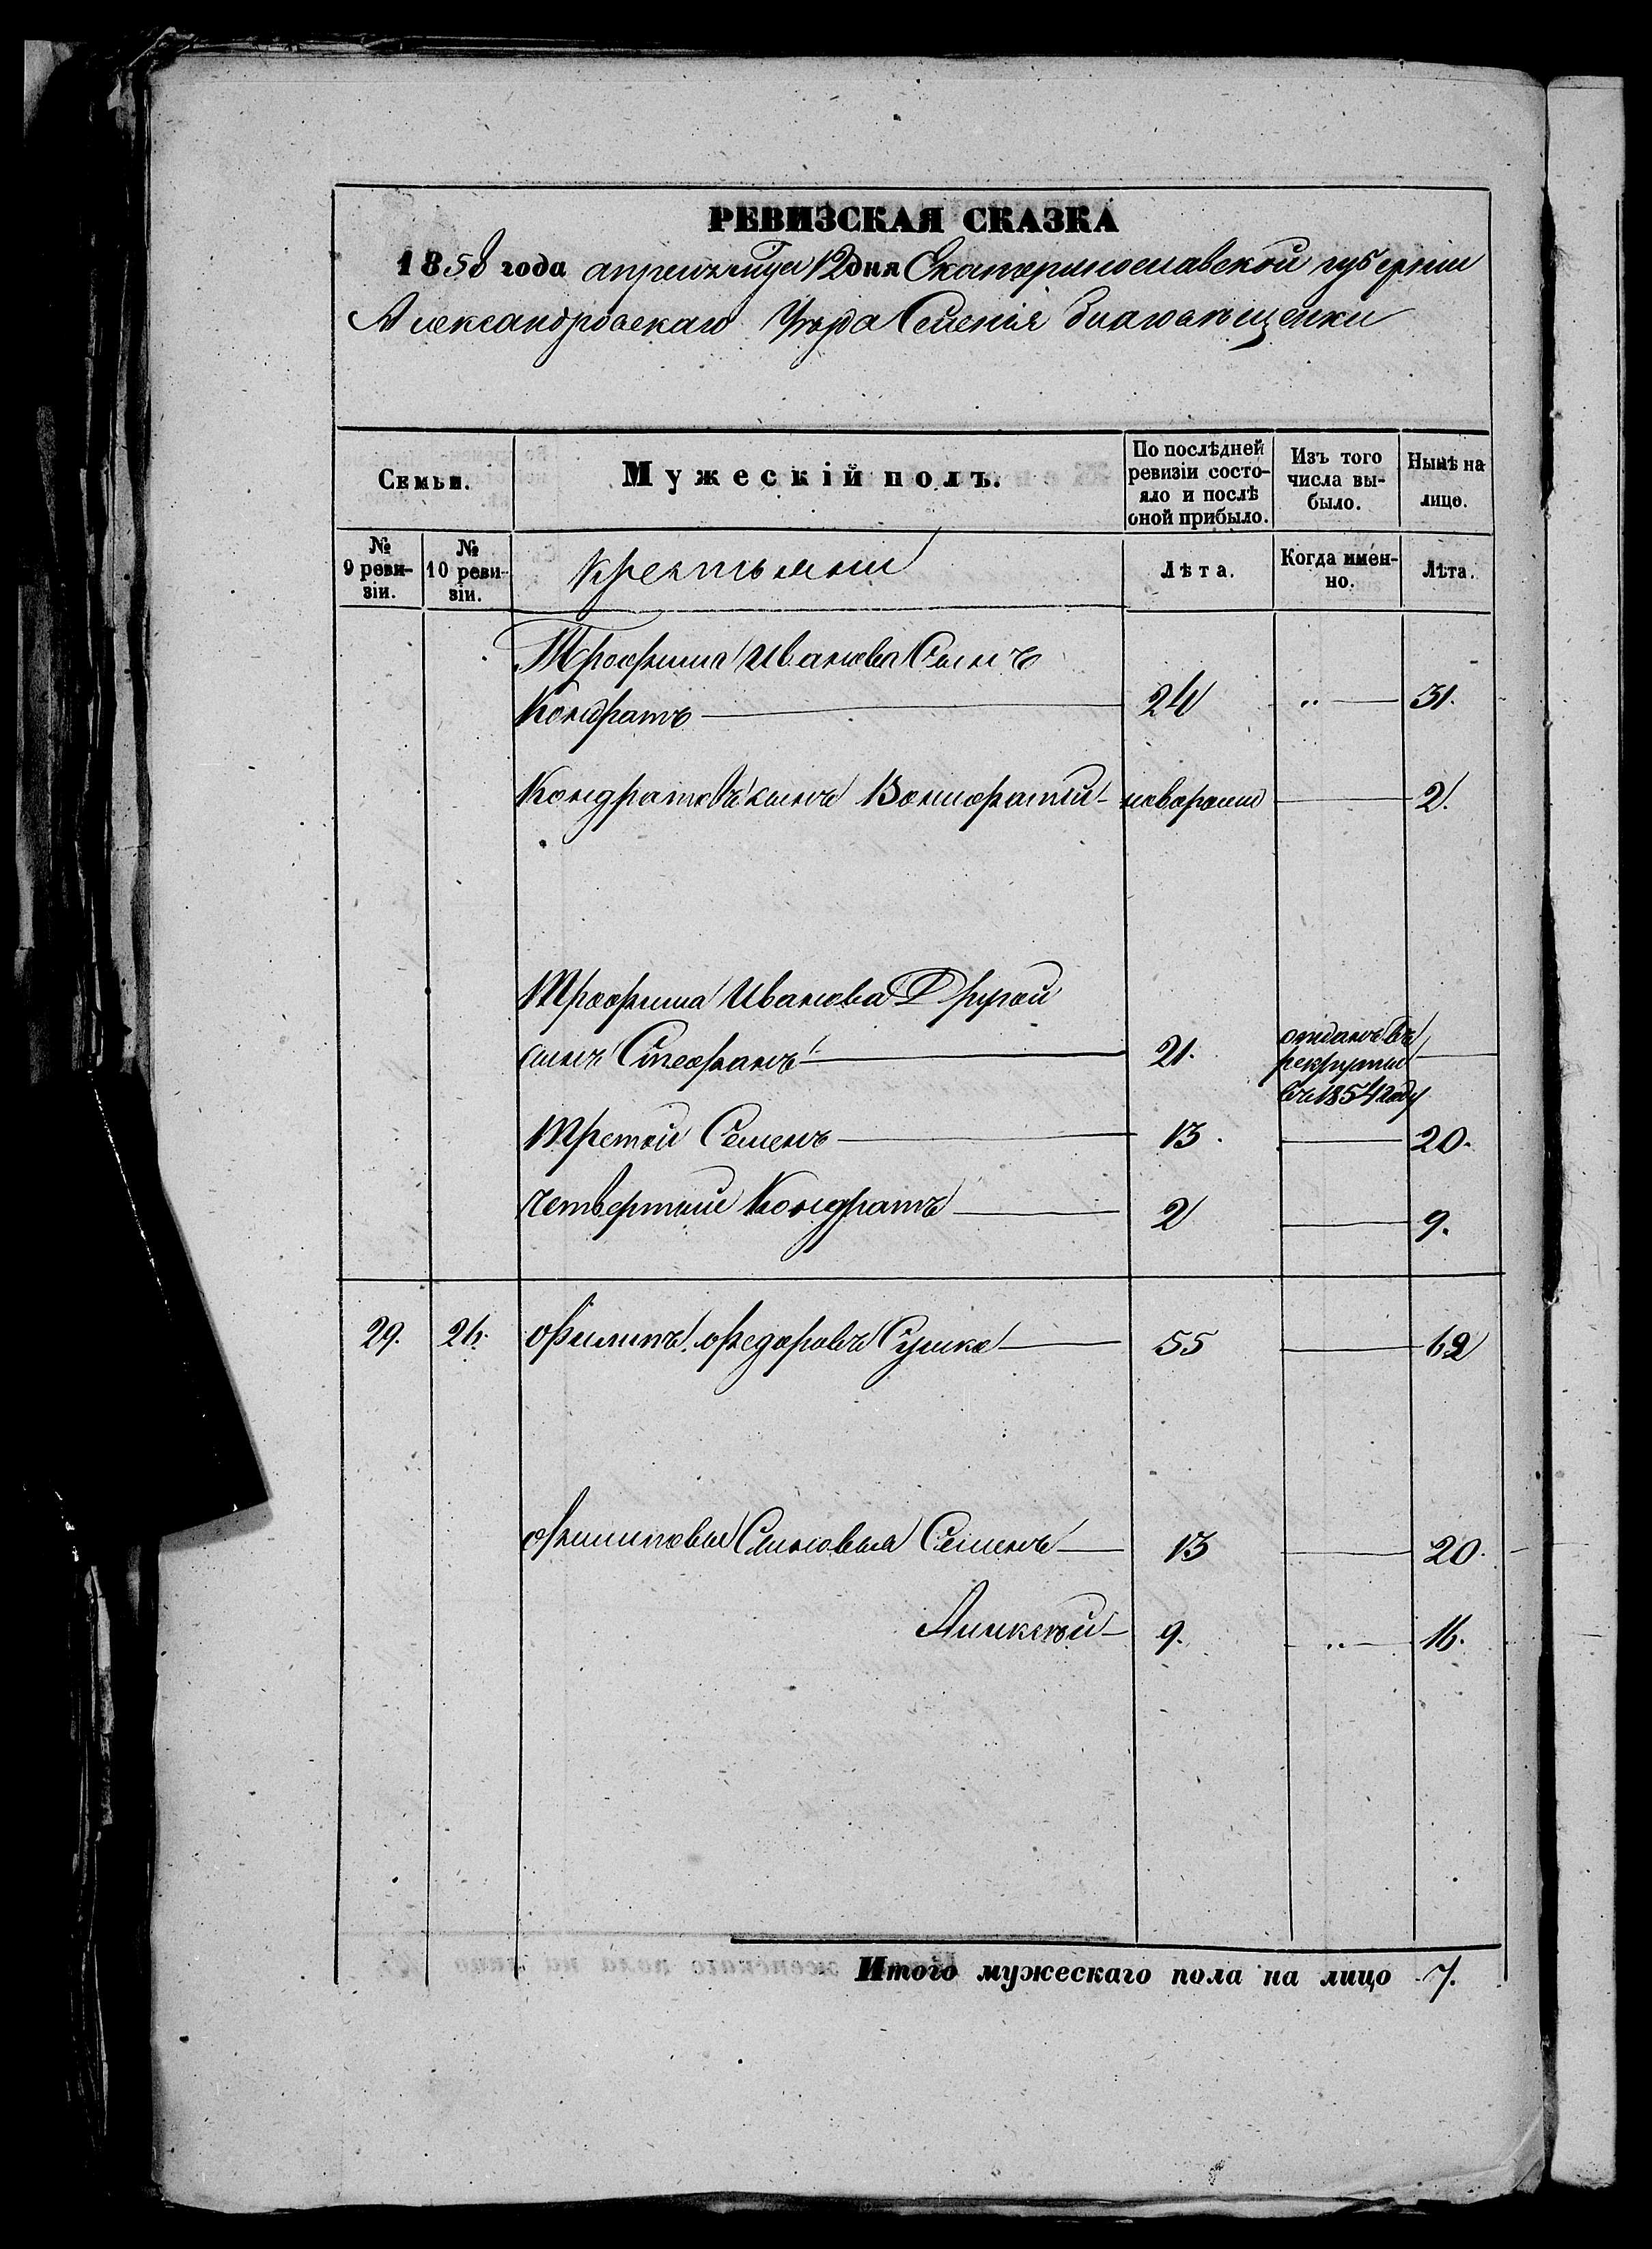 РЕВИЗСКАЯ СКАЗКА
1858 года апреля мца 12 дня Екатеринославской губерніи
Александровскаго Уезда Селенія Благовѣщенки
Семьи.
Мужескій полъ.
По послѣдней
ревизіи состо-
яло и послѣ
оной прибыло.
Изъ того
числа вы-
было.
Нынѣ на
лицо.
№
9 реви-
зіи.
№
10 реви-
зіи.
крестьянъ
Лѣта.
Когда имен-
но.
Лѣта.
Трофима Иванова Сынъ
Кондратъ 24 „ 31.
Кондратовъ сынъ Вонифатій новорожд 2.
Трофима Иванова Другой
сынъ Стефанъ 21. отданъ въ
рекруты
въ 1854 году
Третій Семенъ 13. 20.
четвертый Кондратъ 2 9.
29. 26. Филипъ Федоровъ Сушко 55 62
Филиповы Сыновья Семенъ 13 20.
Алексѣй 9. „ 16.
Итого мужескаго пола на лицо 7.